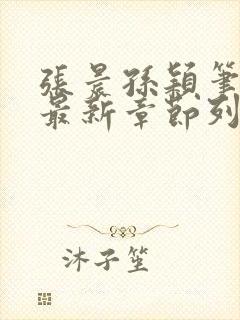 張晨孫穎筆
最新章節列
沐子笙